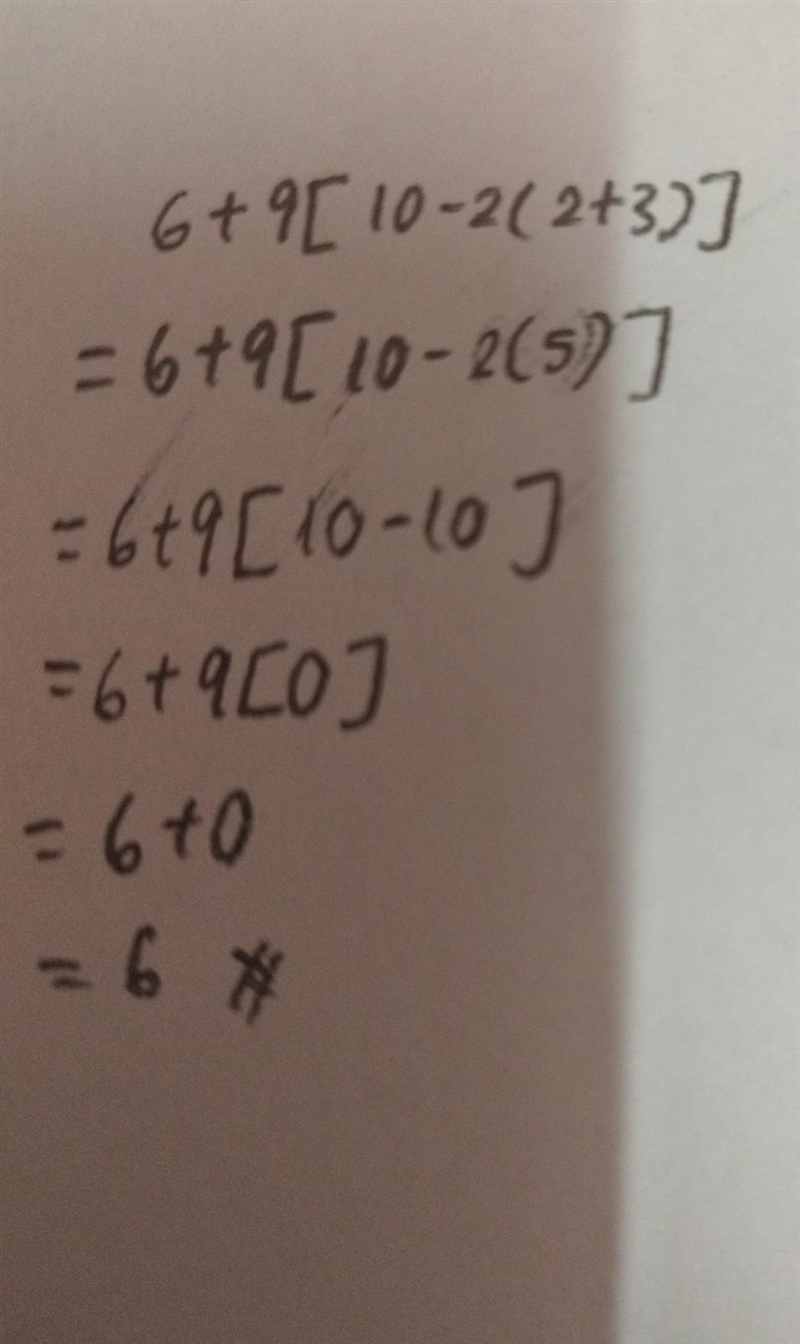 6+9[10-2(2+3)]
=6+9[10-2(5)]
=6+9[10-10]
=6+9[0]
=6+0
=6 #